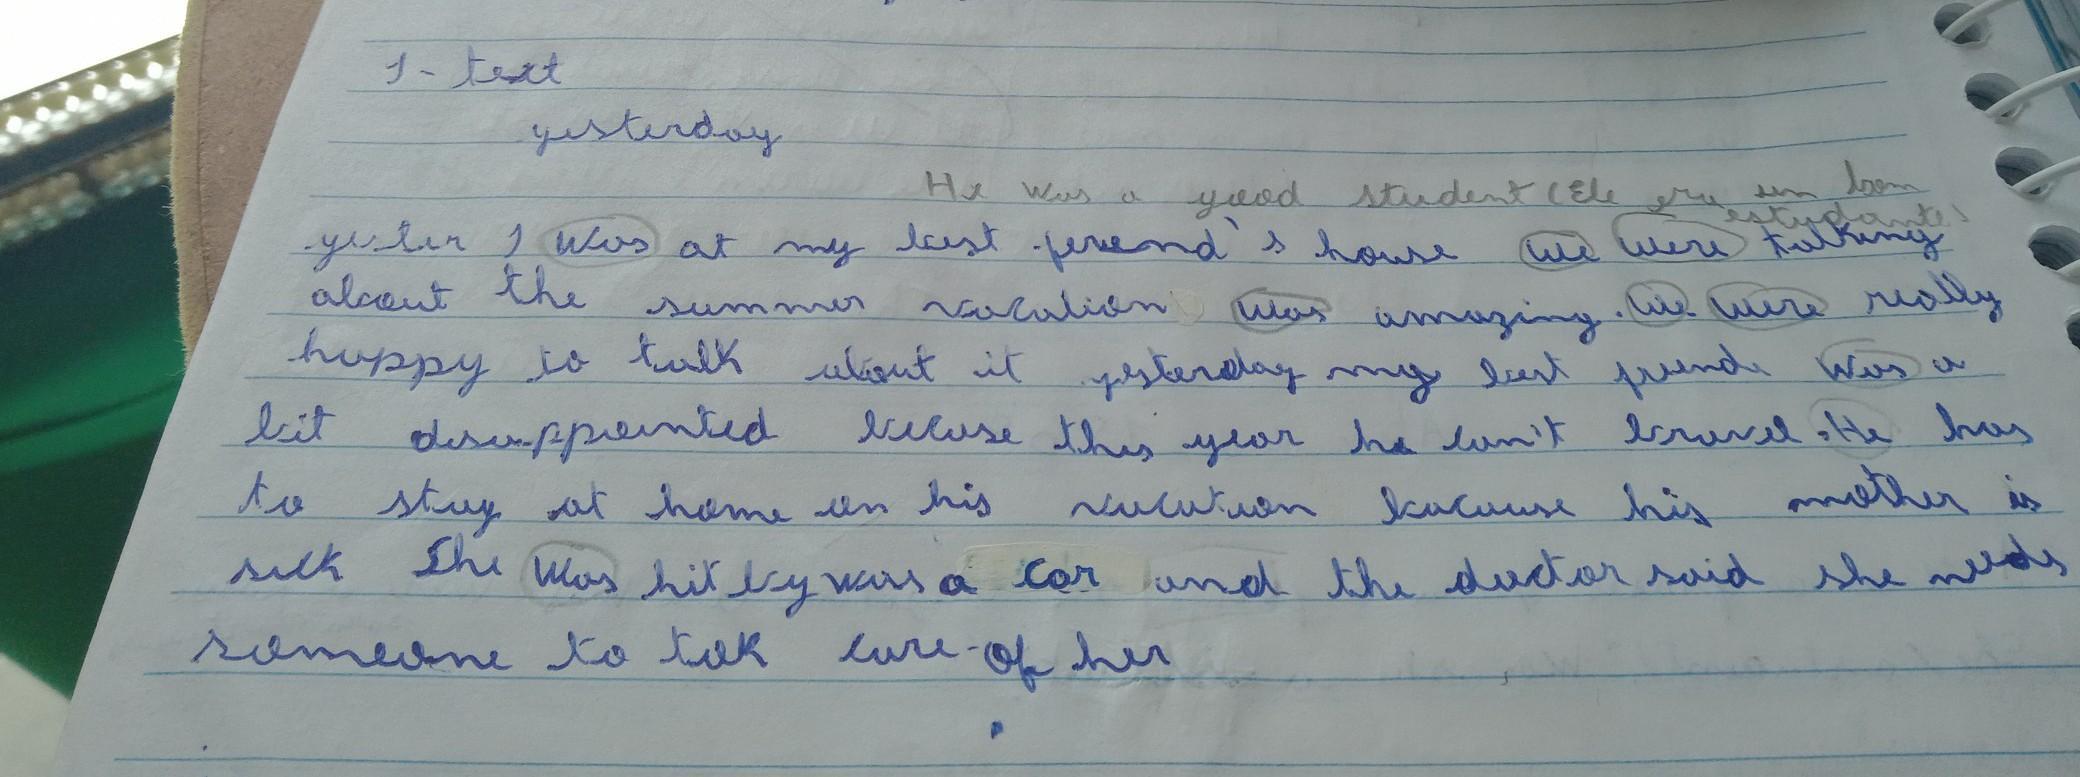 1- text
yesterday
He was a good student (Ele era um bom
estudante)
yester I was at my best freend's house we were talking
about the summer vacation was amazing. we were really
happy to talk about it yesterday my best friend was a
bit disappointed becuse this year he can't travel. He has
to stay at home on his vacation because his mother is
sick She was hit by was a car and the doctor said she needs
someone to tak care of her